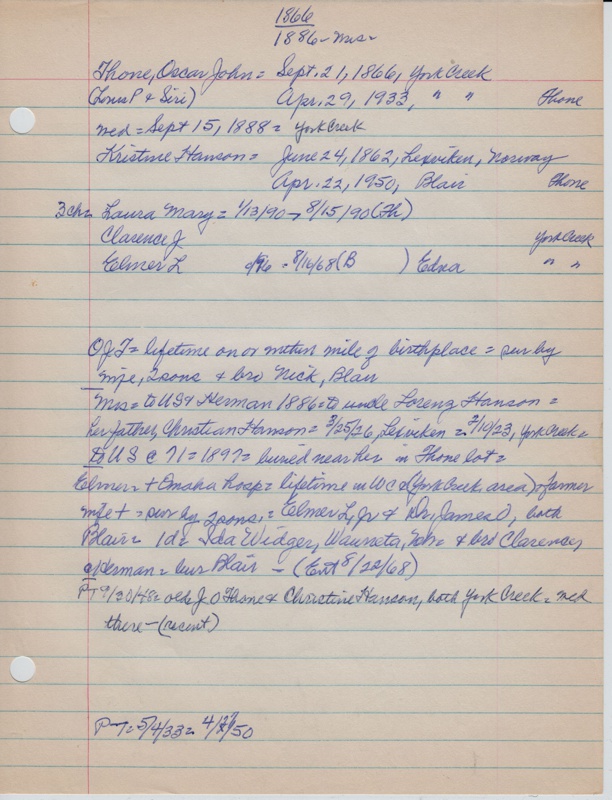 1866
1886 - Mrs -
Thone, Oscar John = Sept. 21, 1866, York Creek
(Lorus P & Siri) Apr. 29, 1933, " " Thone
med = Sept 15, 1888 = York Creek
Kristine Hanson = June 24, 1862, Lexviken, Norway
Apr. 22, 1950, Blair Thone
3 ch = Laura Mary = 1/13/90 → 8/15/90 (Th)
Clarence J York Creek
Elmer L = 8/16/68 (B ) Edna " "
OJT = lifetime on or within mile of birthplace = sur by
wife, 2 sons & bro Nick, Blair
Mrs = to US & Herman 1886 = to uncle Lorenz Hanson =
her father, Christian Hanson = 3/25/26, Lexviken = 2/10/23, York Creek =
to US @ 71 = 1897 = buried near her in Thone lot =
Elmer = + Omaha hosp = lifetime in WC (York Creek area) = farmer
wife + = sur by 2 sons = Elmer L, Jr & Dr. James O, both
Blair = 1d = Ida Widger, Wauneta, Neb = & bro Clarence,
Herman = bur Blair - (Ent 8/22/68)
PT 9/30/48 = old J O Thone & Christine Hanson, both York Creek = med
there - (recent)
PT = 5/4/33 = 4/27/50